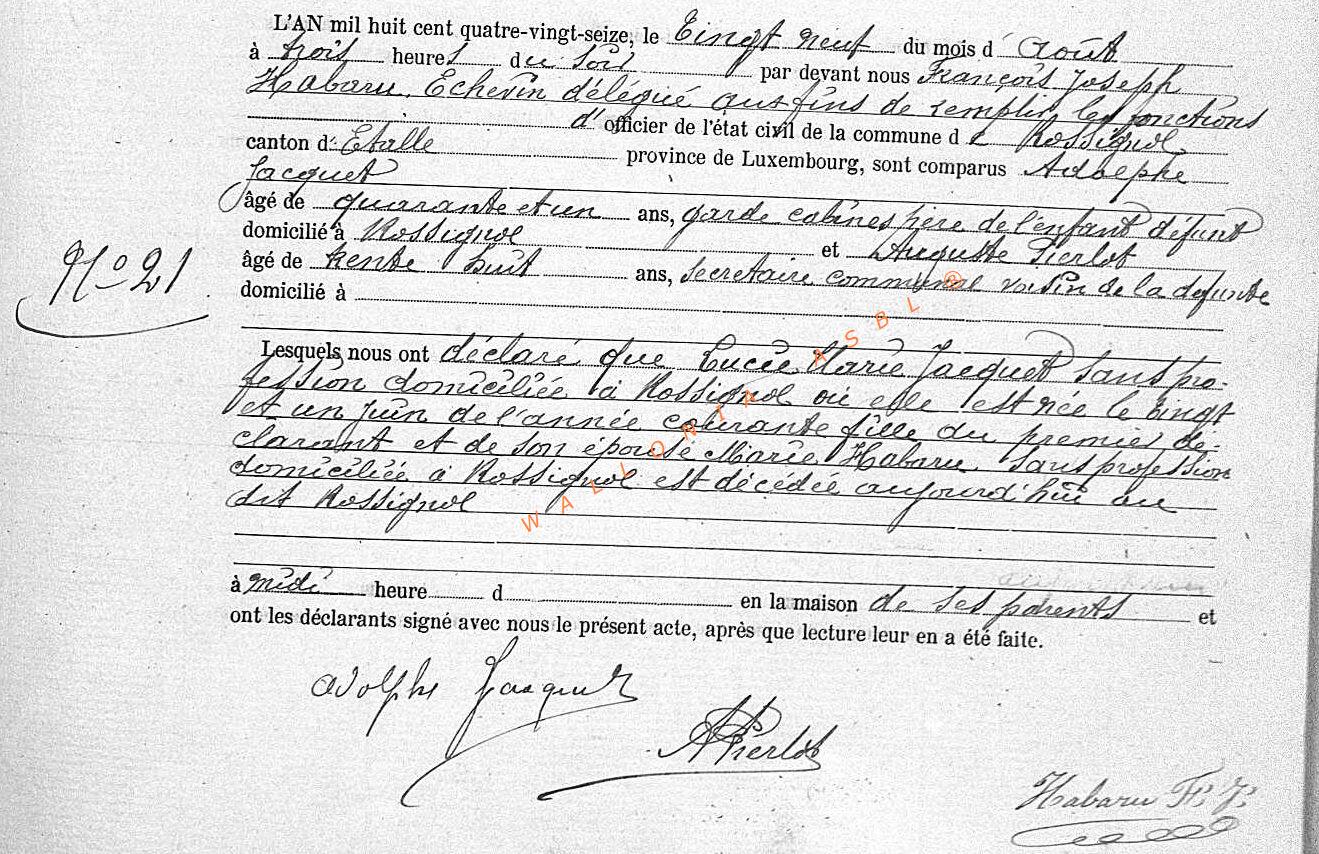 L'AN mil huit cent quatre-vingt-seize, le Vingt neuf du mois d'Août
à trois heures du soir par devant nous François Joseph
Habaru, Echevin délégué aux fins de remplir les fonctions
d'officier de l'état civil de la commune de Rossignol
canton d'Etalle province de Luxembourg, sont comparus Adolphe
Jacquet
âgé de quarante et un ans, garde cabines père de l'enfant défunt
domicilié à Rossignol et Auguste Pierlot
âgé de trente huit ans, secretaire communal voisin de la defunte
N° 21
domicilié à
Lesquels nous ont déclaré que Lucie Marie Jacquet sans pro-
fession domiciliée à Rossignol où elle est née le vingt
et un juin de l'année courante fille du premier dé-
clarant et de son épouse Marie Habaru sans profession
domiciliée à Rossignol est décédée aujourd'hui au
dit Rossignol
à midi heure d en la maison de ses parents et
ont les déclarants signé avec nous le présent acte, après que lecture leur en a été faite.
Adolphe Jacquet
APierlot
Habaru F. J.
WALLONIA ASBL ®